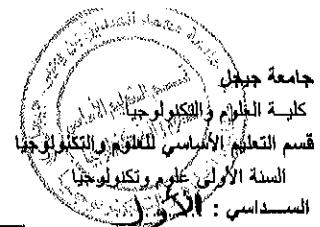 جامعة جيجل
كليـة العلوم والتكنولوجيا
قسم التعليم الأساسي للعلوم والتكنولوجيا
السنة الأولى علوم وتكنولوجيا
الســداسي : الأول